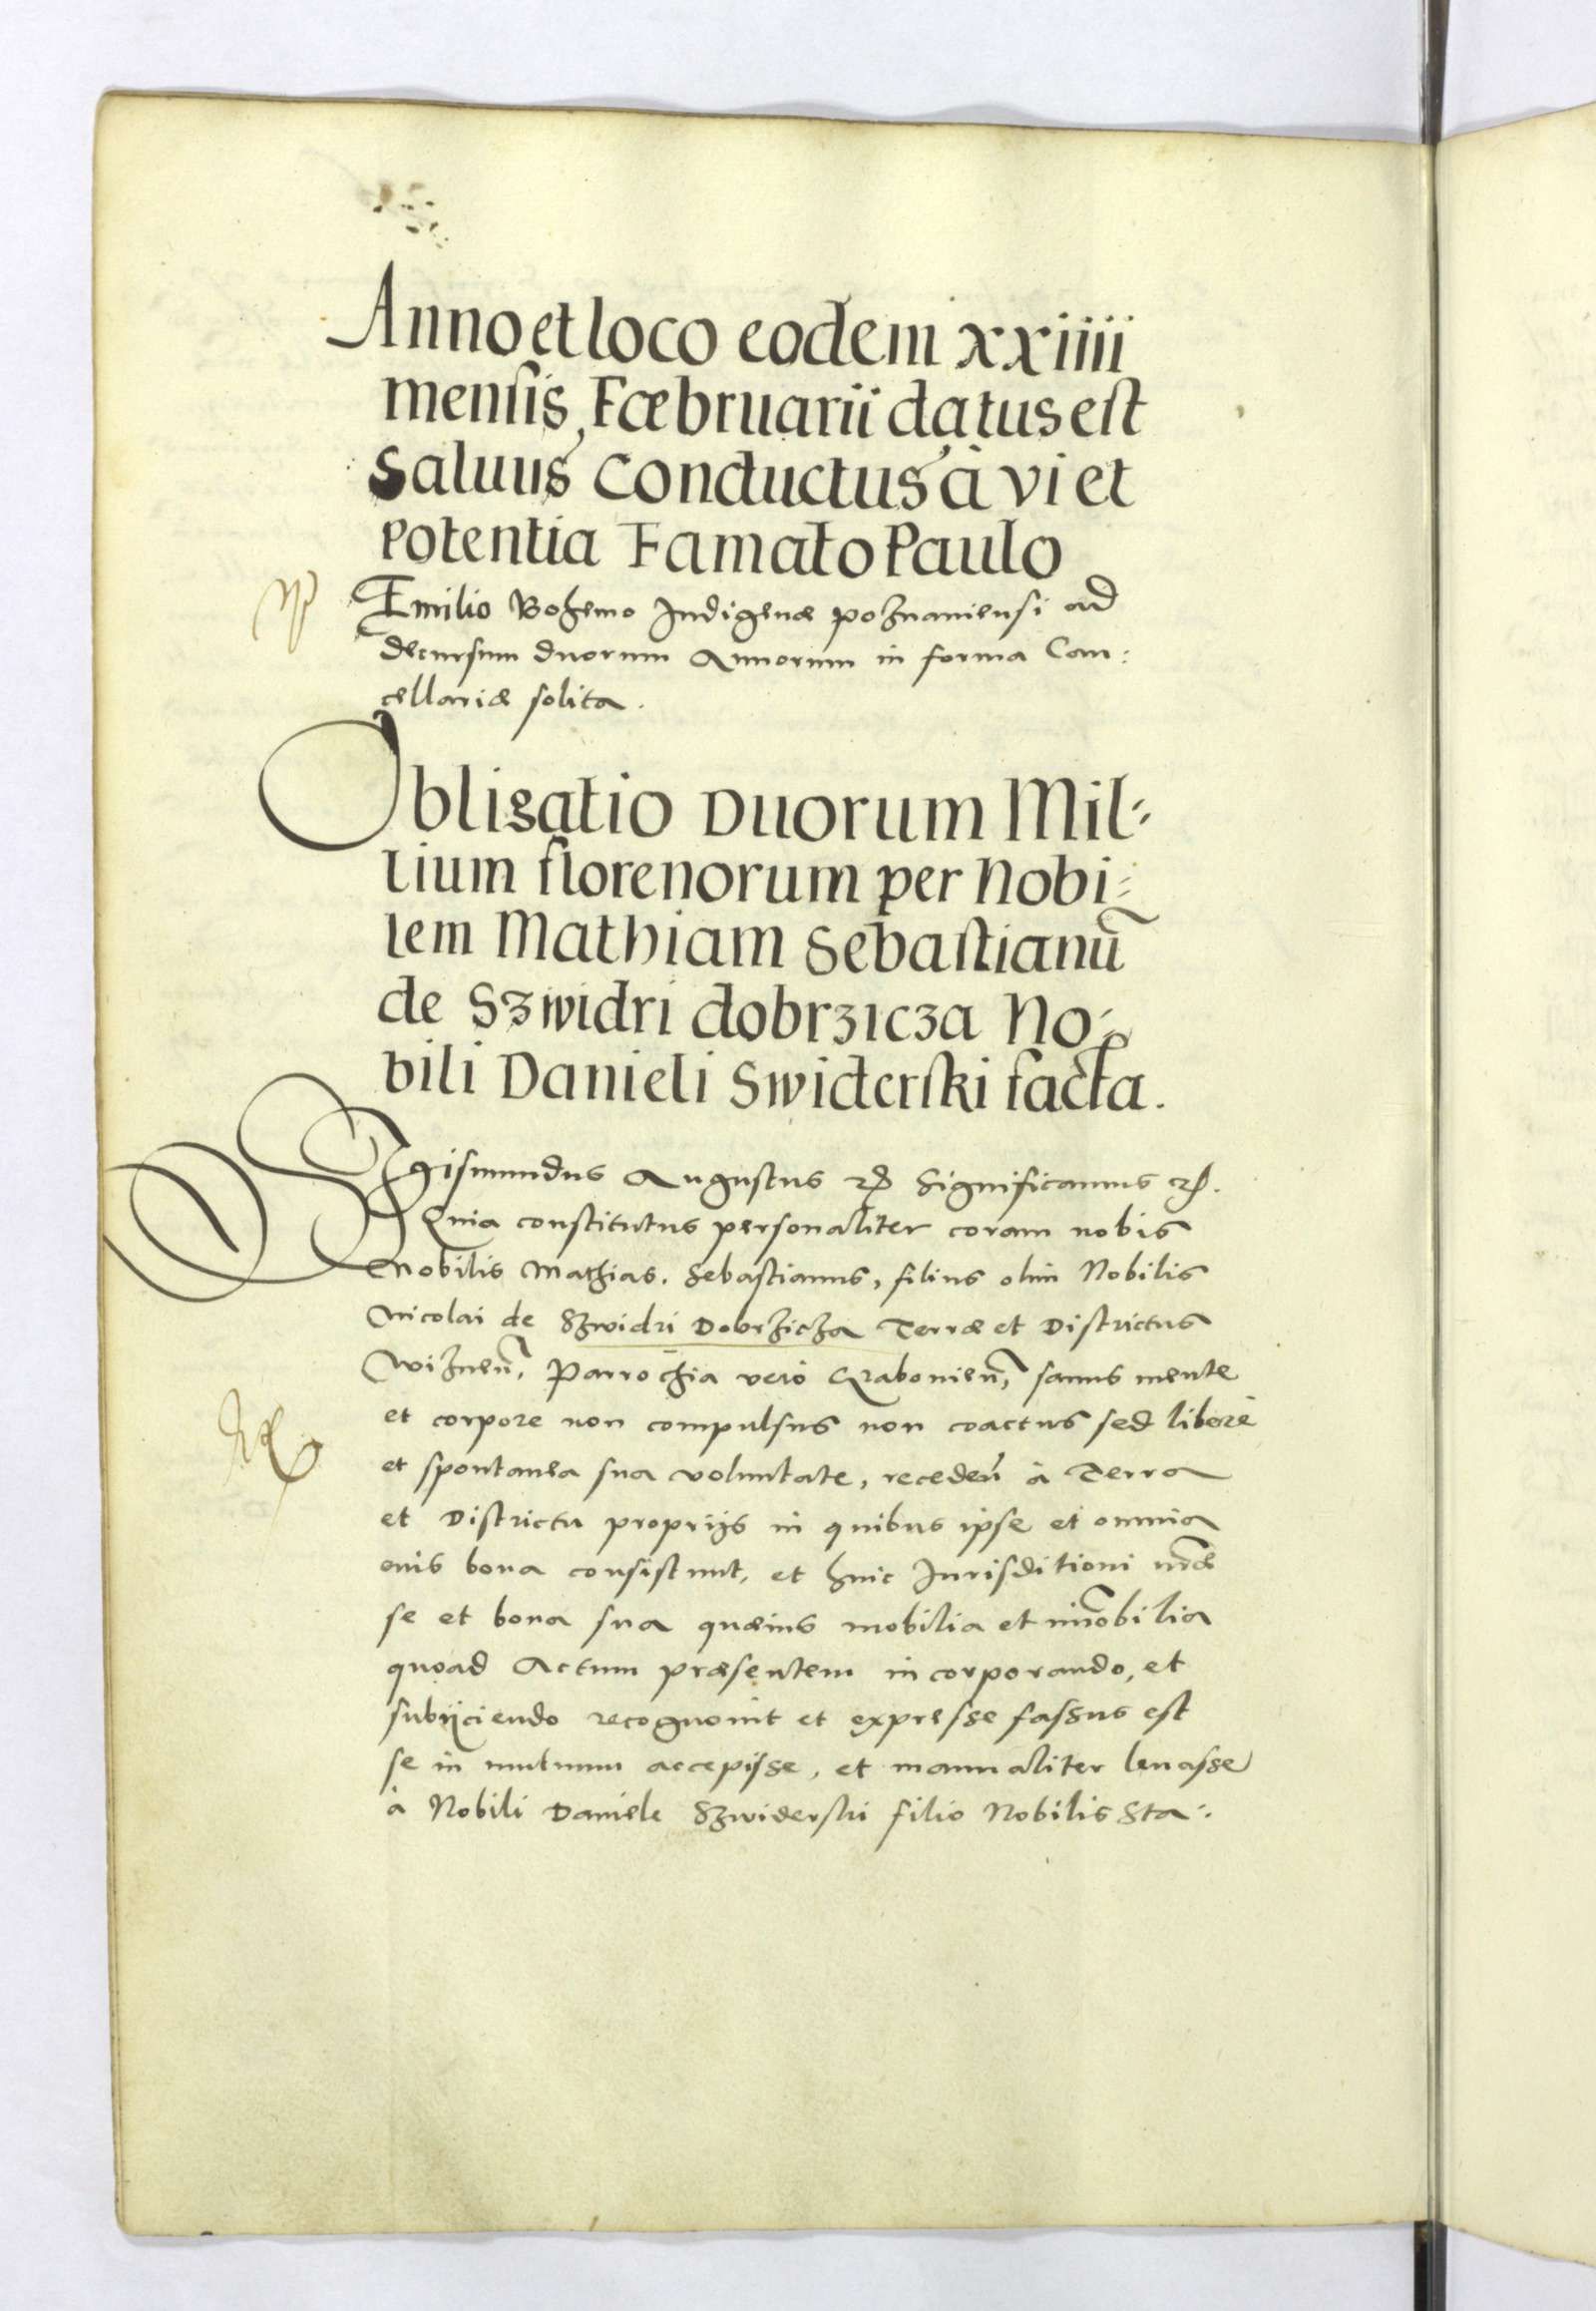 Anno et loco eodem xxiiii
mensis Fœbruarii datus est
Saluus Conductus à vi et
potentia Famato Paulo
Emilio Bohemo Indigenæ poznaniensi ad
decursum duorum Annorum in forma Can:
cellariæ solita.
Obligatio Duorum Mil=
lium florenorum per Nobi=
lem Mathiam Sebastianū
de Szwidri dobrzicza No=
bili Danieli Swiderski facta.
Sigismundus Augustus Significamus
Quia constitutus personaliter coram nobis
Nobilis Mathias Sebastianus, filius olim Nobilis
Nicolai de Szwidri Dobrzicza Terræ et Districtus
Wiznen̄, Parrochia verò Grabonien̄, sanus mente
et corpore non compulsus non coactus sed liberè
et spontanea sua voluntate, receden̄ à Terra
et Districtu proprijs in quibus ipse et omnia
eius bona consistunt, et huic Jurisditioni nr̄æ
se et bona sua quæuis mobilia et im̄obilia
quoad Actum præsentem incorporando, et
subijciendo recognouit et expresse fassus est
se in mutuum accepisse, et manualiter leuasse
à Nobili Daniele Szwiderski filio Nobilis Sta: